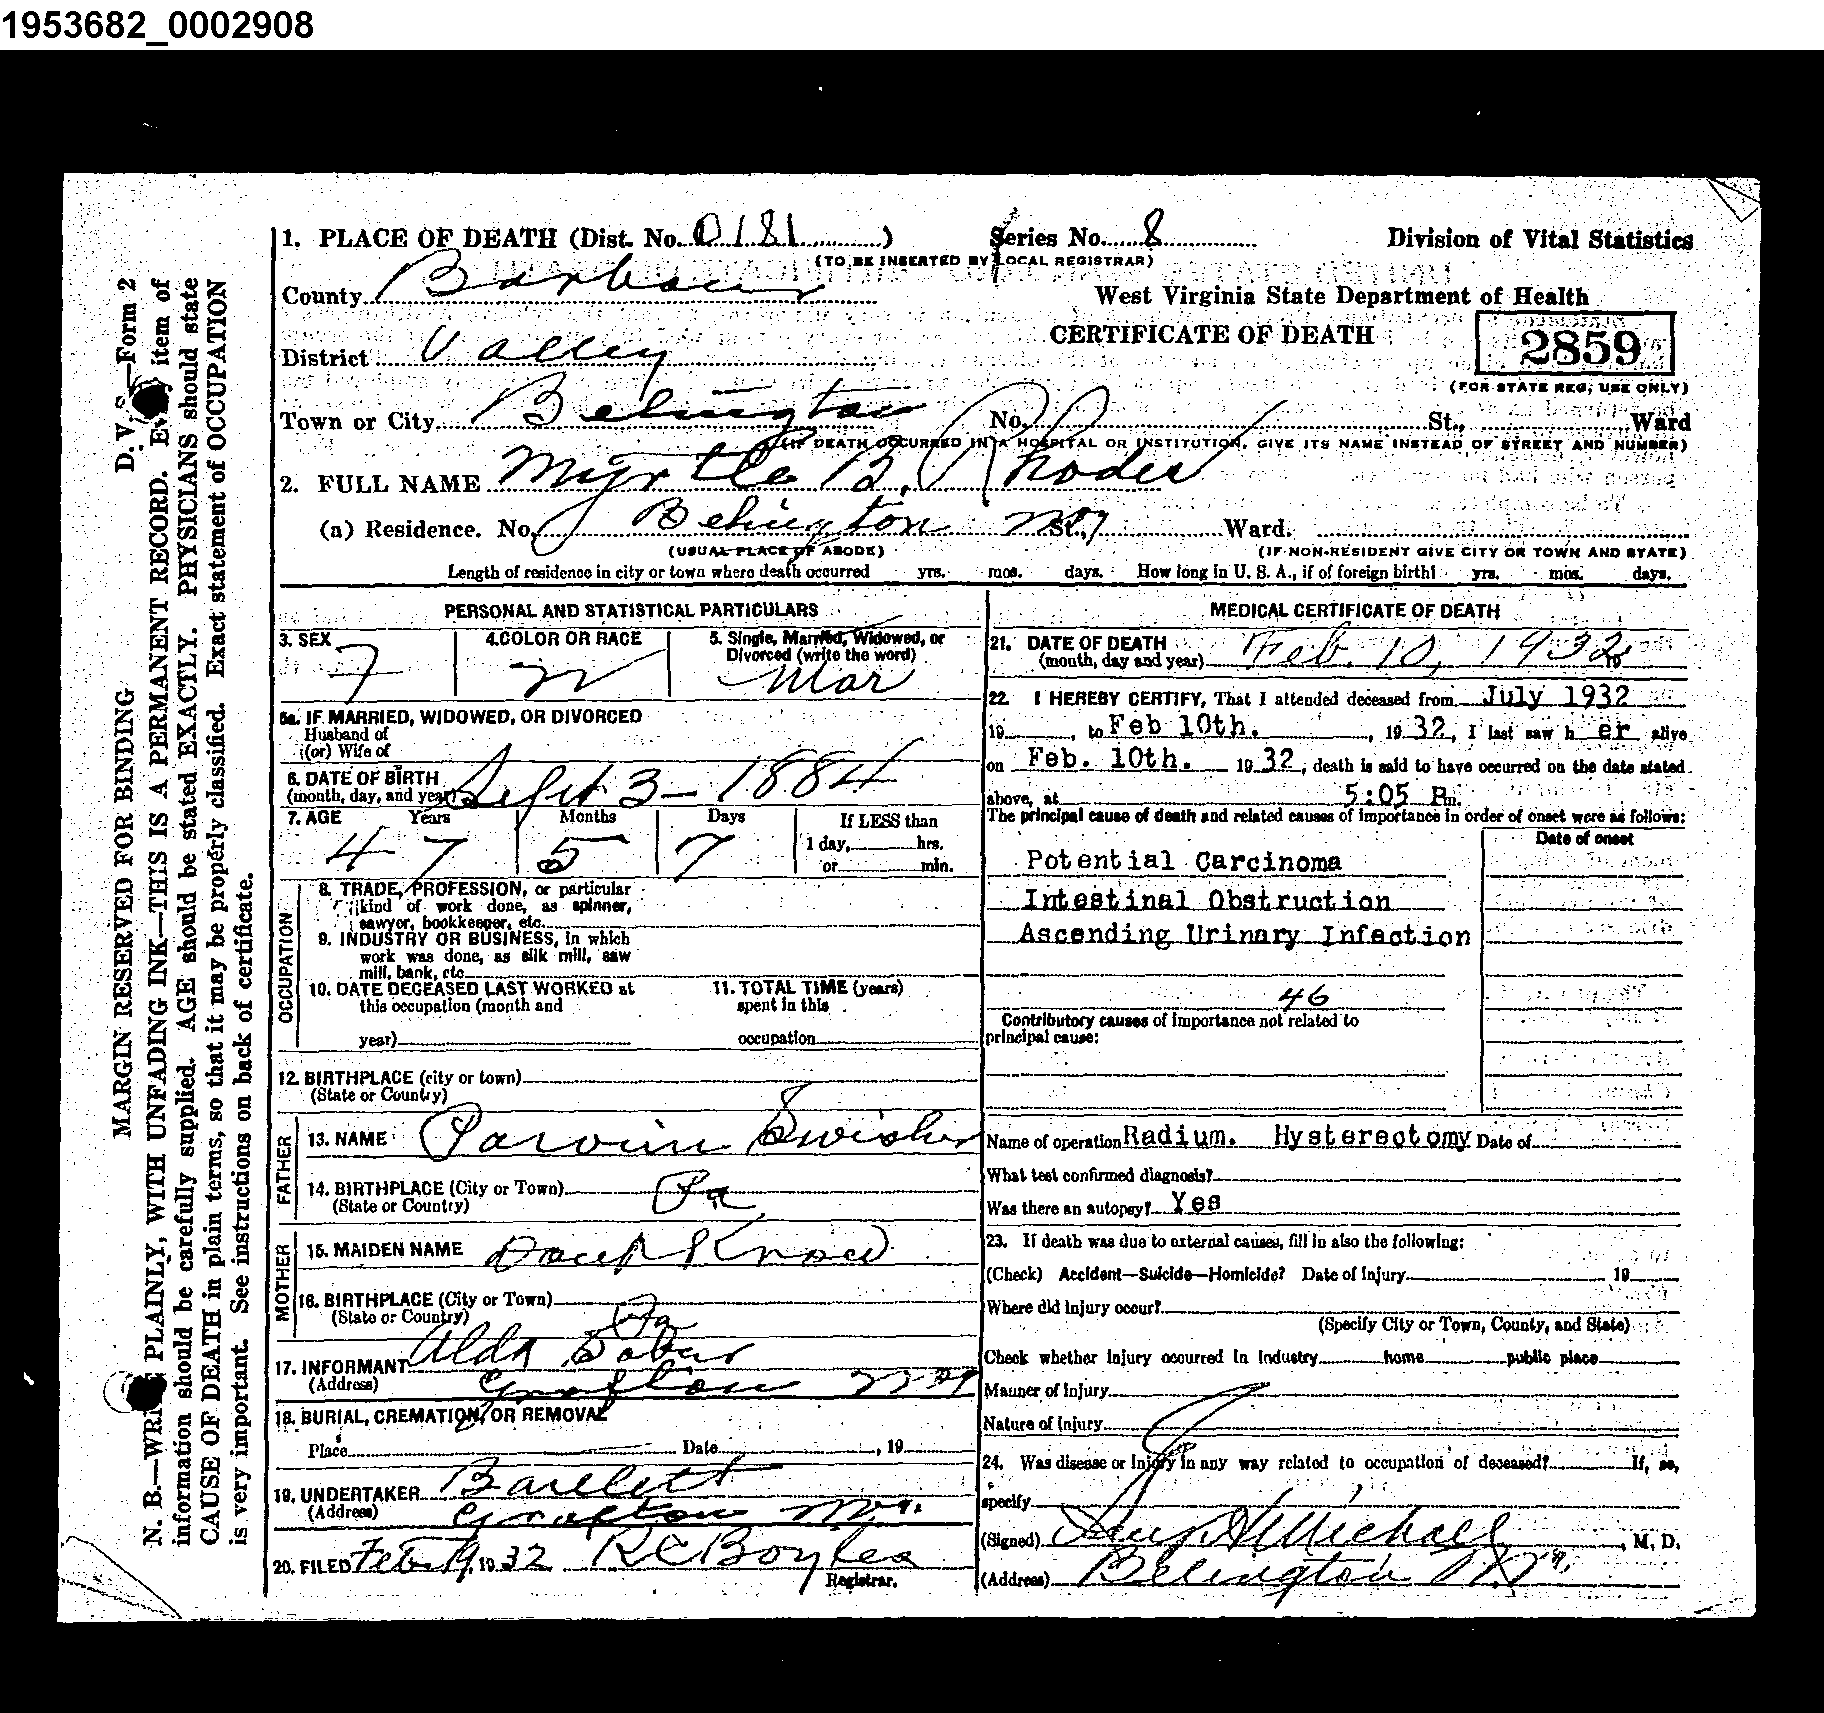 1953682_0002908
MARGIN RESERVED FOR BINDING D. V. S.—Form 2
N. B.—WRITE PLAINLY, WITH UNFADING INK—THIS IS A PERMANENT RECORD. Every item of
information should be carefully supplied. AGE should be stated EXACTLY. PHYSICIANS should state
CAUSE OF DEATH in plain terms, so that it may be properly classified. Exact statement of OCCUPATION
is very important. See instructions on back of certificate.
1. PLACE OF DEATH (Dist. No. 0181) Series No. 8 Division of Vital Statistics
(TO BE INSERTED BY LOCAL REGISTRAR)
County Barbour West Virginia State Department of Health
District Valley CERTIFICATE OF DEATH 2859
(FOR STATE REG. USE ONLY)
Town or City Belington No. St., Ward
(IF DEATH OCCURRED IN A HOSPITAL OR INSTITUTION, GIVE ITS NAME INSTEAD OF STREET AND NUMBER)
2. FULL NAME Myrtle B. Rhodes
(a) Residence. No. Belington St., Ward.
(USUAL PLACE OF ABODE) (IF NON-RESIDENT GIVE CITY OR TOWN AND STATE)
Length of residence in city or town where death occurred yrs. mos. days. How long in U. S. A., if of foreign birth? yrs. mos. days.
PERSONAL AND STATISTICAL PARTICULARS
3. SEX 4. COLOR OR RACE 5. Single, Married, Widowed, or
Divorced (write the word)
F W Mar
5a. IF MARRIED, WIDOWED, OR DIVORCED
Husband of
(or) Wife of
6. DATE OF BIRTH
(month, day, and year) Sept 3 - 1884
7. AGE Years Months Days If LESS than
1 day, hrs.
or min.
47 5 7
OCCUPATION
8. TRADE, PROFESSION, or particular
kind of work done, as spinner,
sawyer, bookkeeper, etc.
9. INDUSTRY OR BUSINESS, in which
work was done, as silk mill, saw
mill, bank, etc.
10. DATE DECEASED LAST WORKED at
this occupation (month and
year)
11. TOTAL TIME (years)
spent in this
occupation
12. BIRTHPLACE (city or town)
(State or Country)
FATHER
13. NAME Parvin Swisher
14. BIRTHPLACE (City or Town) Pa
(State or Country)
MOTHER
15. MAIDEN NAME Dont Know
16. BIRTHPLACE (City or Town)
(State or Country) Pa
17. INFORMANT Alda
(Address) Grafton
18. BURIAL, CREMATION, OR REMOVAL
Place Date , 19
19. UNDERTAKER Bartlett
(Address) Grafton
20. FILED Feb 19, 1932 R C Boyles
Registrar.
MEDICAL CERTIFICATE OF DEATH
21. DATE OF DEATH
(month, day and year) Feb. 10, 1932 19
22. I HEREBY CERTIFY, That I attended deceased from July 1932
19 , to Feb 10th. , 19 32, I last saw h er alive
on Feb. 10th. 19 32, death is said to have occurred on the date stated
above, at 5:05 P m.
The principal cause of death and related causes of importance in order of onset were as follows:
Date of onset
Potential Carcinoma
Intestinal Obstruction
Ascending Urinary Infection
46
Contributory causes of importance not related to
principal cause:
Name of operation Radium. Hysterectomy Date of
What test confirmed diagnosis?
Was there an autopsy? Yes
23. If death was due to external causes, fill in also the following:
(Check) Accident—Suicide—Homicide? Date of Injury 19
Where did injury occur?
(Specify City or Town, County, and State)
Check whether injury occurred in industry home public place
Manner of Injury
Nature of Injury
24. Was disease or Injury in any way related to occupation of deceased? If, so,
specify
(Signed) Michael, M. D.
(Address) Belington